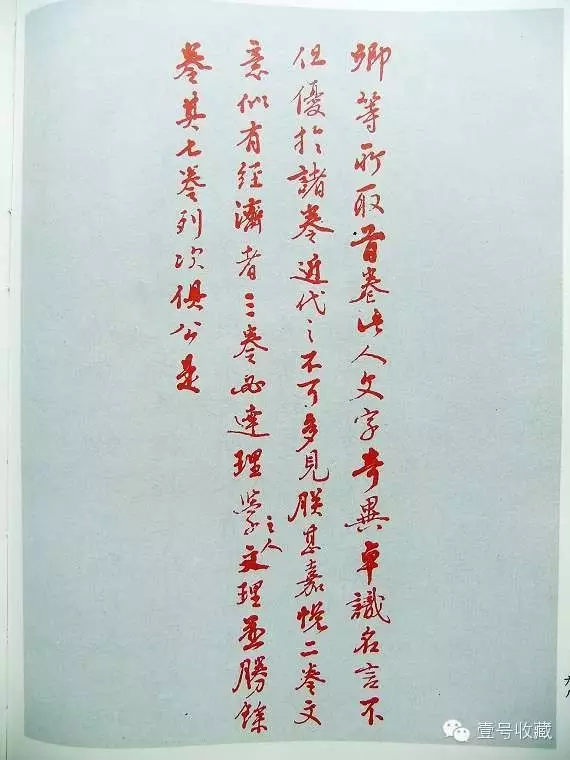 卿等所取首卷此人文字奇異卓識名言不
但優於諸卷近代之不可多見朕甚嘉悅二卷文
意似有經濟者三卷必達理學之人文理並勝餘
卷其七卷列次俱公是
壹号收藏